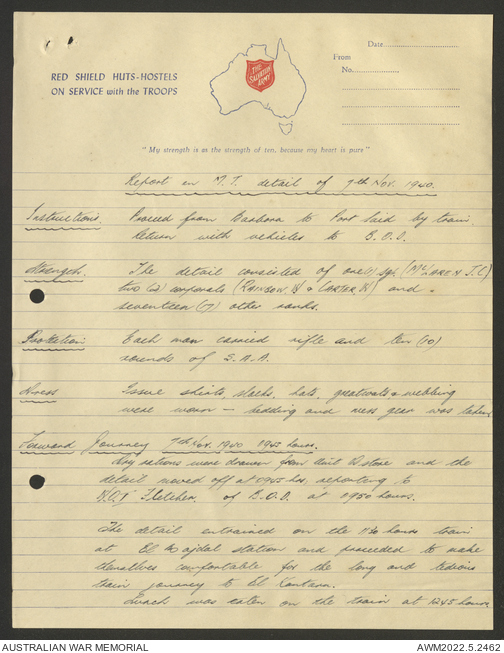 Date
From
No.
RED SHIELD HUTS-HOSTELS
ON SERVICE with the TROOPS
THE SALVATION ARMY
"My strength is as the strength of ten, because my heart is pure"
Report on M.T. detail of 7th Nov. 1940.
Instructions. Proceed from Barbara to Port Said by train.
Return with vehicles to B.O.D.
Strength. The detail consisted of one (1) Sgt. (J.C)
two (2) corporals (RAINBOW. & CARTER.) and
seventeen (17) other ranks.
Protection. Each man carried rifle and ten (10)
rounds of S.A.A.
Dress Issue shirts, slacks, hats, greatcoats & webbing
were worn — bedding and mess gear was taken.
Forward Journey 7th Nov. 1940 0945 hours.
Dry rations were drawn from Unit Q store and the
detail moved off at 0945 hrs. reporting to
Fletcher. of B.O.D. at 0950 hours.
The detail entrained on the hours train
at El Majdal station and proceeded to make
themselves comfortable for the long and tedious
train journey to El Kantara.
Lunch was eaten on the train at 1245 hours
AUSTRALIAN WAR MEMORIAL
AWM2022.5.2462